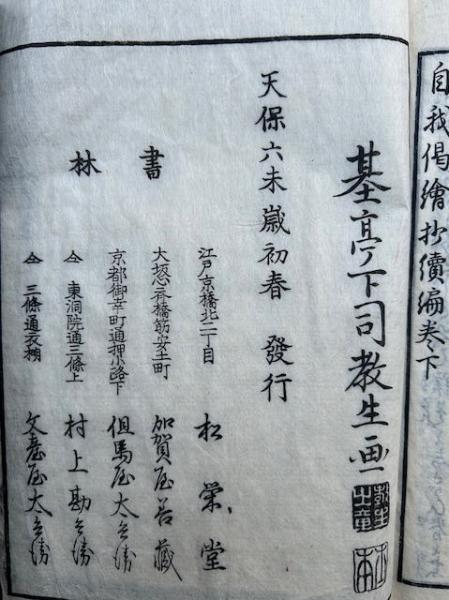 自我偈繪抄續編卷下
墓亭下司教生画
天保六未歳初春 發行
書林
江戸京橋北二丁目 松榮堂
大坂心斎橋筋安土町 加賀屋善藏
京都御幸町通押小路下 但馬屋太兵衛
仝 東洞院通三條上 村上勘兵衛
仝 三條通衣棚 文臺屋太兵衛